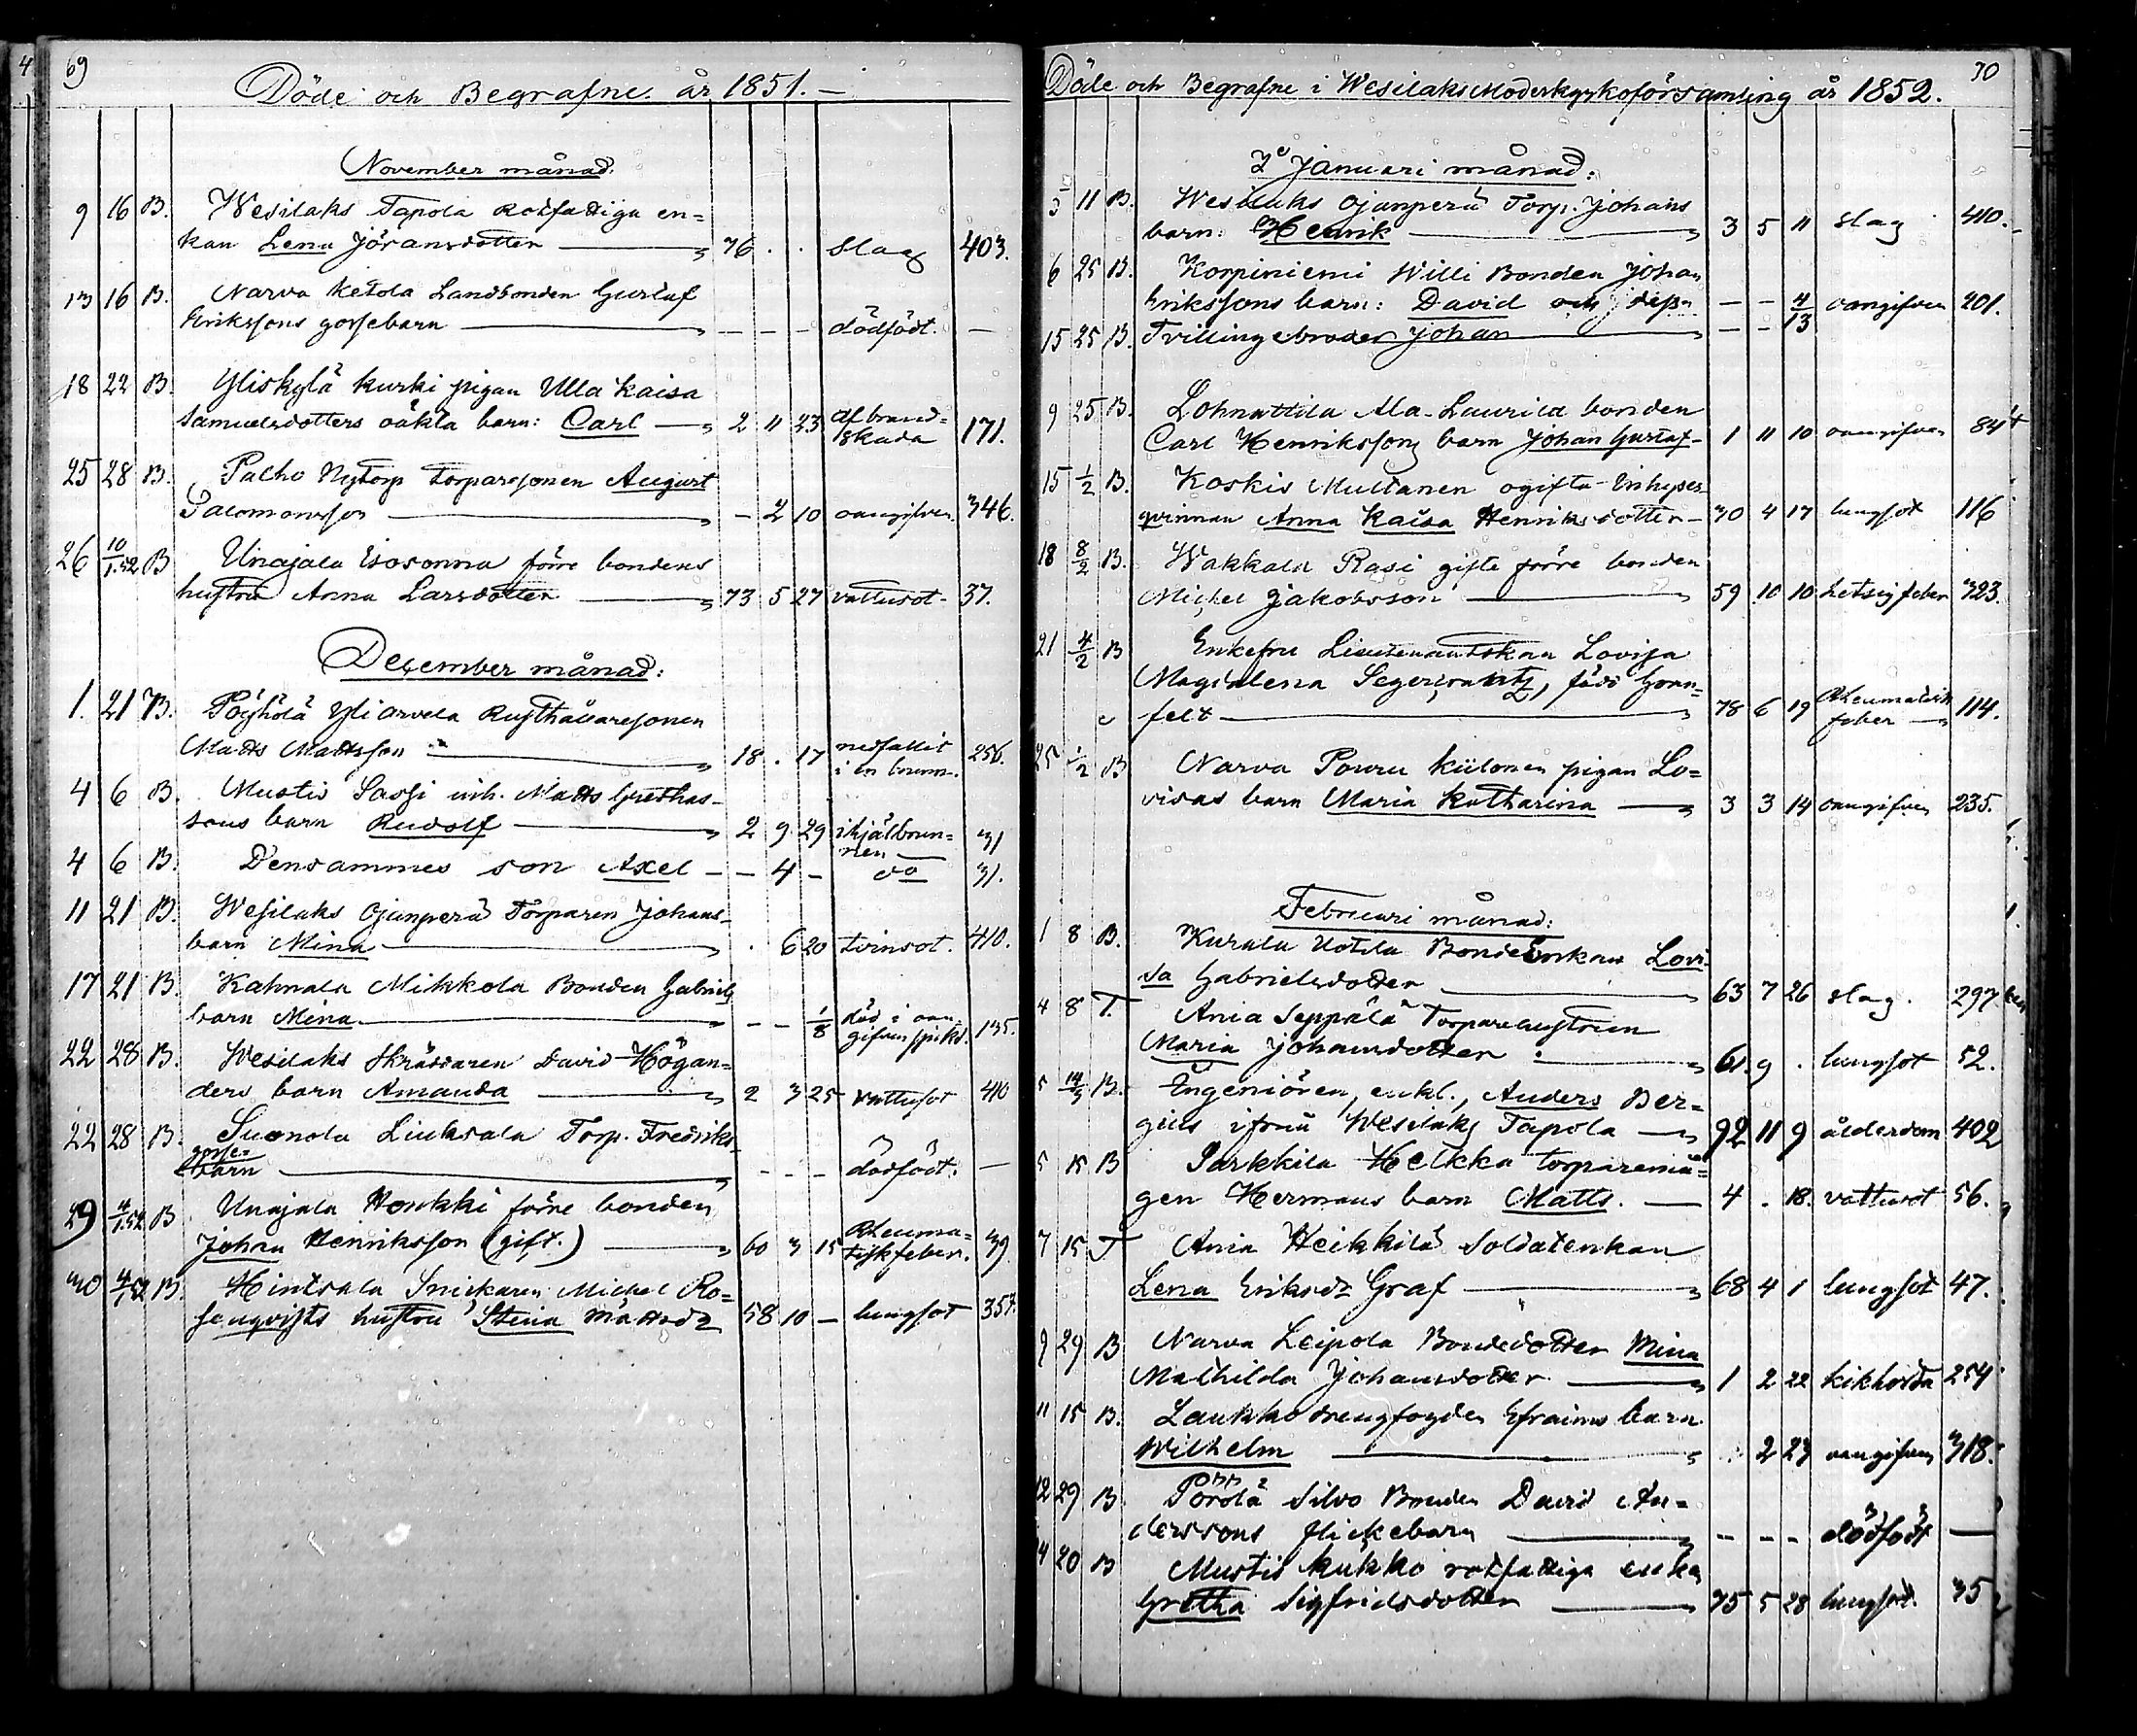 69
Döde och Begrafne år 1851.
November månad:
9 16 B. Wesilaks Tapola Rotfattiga en=
kan Lena Jöransdotter 76 . . slag 403.
13 16 B. Narva Ketola Landbonden Gustaf
Erikssons gossebarn - - - dödfödt. -
18 22 B. Yliskylä Kurki pigan Ulla Kaisa
Samuelsdotters oäkta barn: Carl 2 11 23 af brand=
skada 171.
25 28 B. Palho Nytorp torparesonen August
Salomonsson - 2 10 oangifven 346.
26 10/1.52 B Unajala Isosonna förre bondens
hustru Anna Larsdotter 73 5 27 vattusot 37.
December månad:
1. 21 B. Pöyhölä Yliarvela Rusthållaresonen
Matts Mattsson 18 . 17 nedfallit
i en brunn. 256.
4 6 B. Mustis Sassi inh. Matts Grethas-
sons barn Rudolf 2 9 29 ihjälbrun=
nen 31
4 6 B. Densammes son Axel - - 4 - do 31.
11 21 B. Wesilaks Ojanperä Torparen Johans
barn Mina . 6 20 tvinsot. 410.
17 21 B. Kahnala Mikkola Bonden Gabriels
barn Mina - - 1/8 död i oan-
gifven sjukd. 135.
22 28 B. Wesilaks Skräddaren David Högan=
ders barn Amanda 2 3 25 vattusot 410
22 28 B. Suonola Liuksala Torp. Fredriks
gosse-
barn - - - dödfödt. -
29 4/1.52 B Unajala Honkki förre bonden
Johan Henriksson (gift.) 60 3 15 Rheuma=
tiskfeber. 39.
30 4/1 52 B. Hintsala Snickaren Michel Ro=
senqvists hustru Stina Mattsdr 58 10 - lungsot 357.
70
Döde och Begrafne i Wesilaks Moderkyrkoförsamling år 1852.
Januari månad:
5 11 B. Wesilaks Ojanperä Torp. Johans
barn: Henrik 3 5 11 slag 410.
6 25 B. Korpiniemi Willi Bonden Johan
Erikssons barn: David och dess - - 4 oangifven 201.
15 25 B. Tvillingebroder Johan - - 13
9 25 B. Lohnattila Ala-Laurila bonden
Carl Henrikssons barn Johan Gustaf 1 11 10 oangifven 84
15 1/2 B. Koskis Multanen ogifta Inhyses-
qvinnan Anna Kaisa Henriksdotter 30 4 17 lungsot 116
18 8/2 B. Wakkala Rasi gifte förre bonden
Michel Jakobsson 59 10 10 hetsigfeber 323.
21 4/2 B Enkefru Lieutenantskan Lovisa
Magdalena Segercrantz, född Gran=
felt 78 6 19 Rheumatisk
feber 114.
25 1/2 B Narva Pouru Kiilonen pigan Lo=
visas barn Maria Katharina 3 3 14 oangifven 235.
Februari månad:
1 8 B. Kurala Uotila Bondeenkan Lovi
sa Gabrielsdotter 63 7 26 slag. 297
4 8 T. Ania Seppälä Torparehustrun
Maria Johansdotter 61. 9 . lungsot 52.
5 14/3 B. Ingeniören, enkl., Anders Ber=
gius ifrån Wesilaks Tapola 92 11 9 ålderdom 402
5 15 B Parkkila Heikka torparemå=
gen Hermans barn Matts. 4 . 18. vattusot 56.
7 15 T Ania Heikkilä Soldatenkan
Lena Eriksdr Graf 68 4 1 lungsot 47.
9 29 B Narva Leipola Bondedotter Mina
Mathilda Johansdotter 1 2 22 kikhosta 254
11 15 B. Laukko drengfogden Efraims barn
Wilhelm . 2 23 oangifven 318.
12 29 B Pörölä Silvo Bonden David An=
derssons flickebarn - - - dödfödt -
14 20 B Mustis Kukko rotfattiga enka
Gretha Sigfridsdotter 75 5 28 lungsot. 35